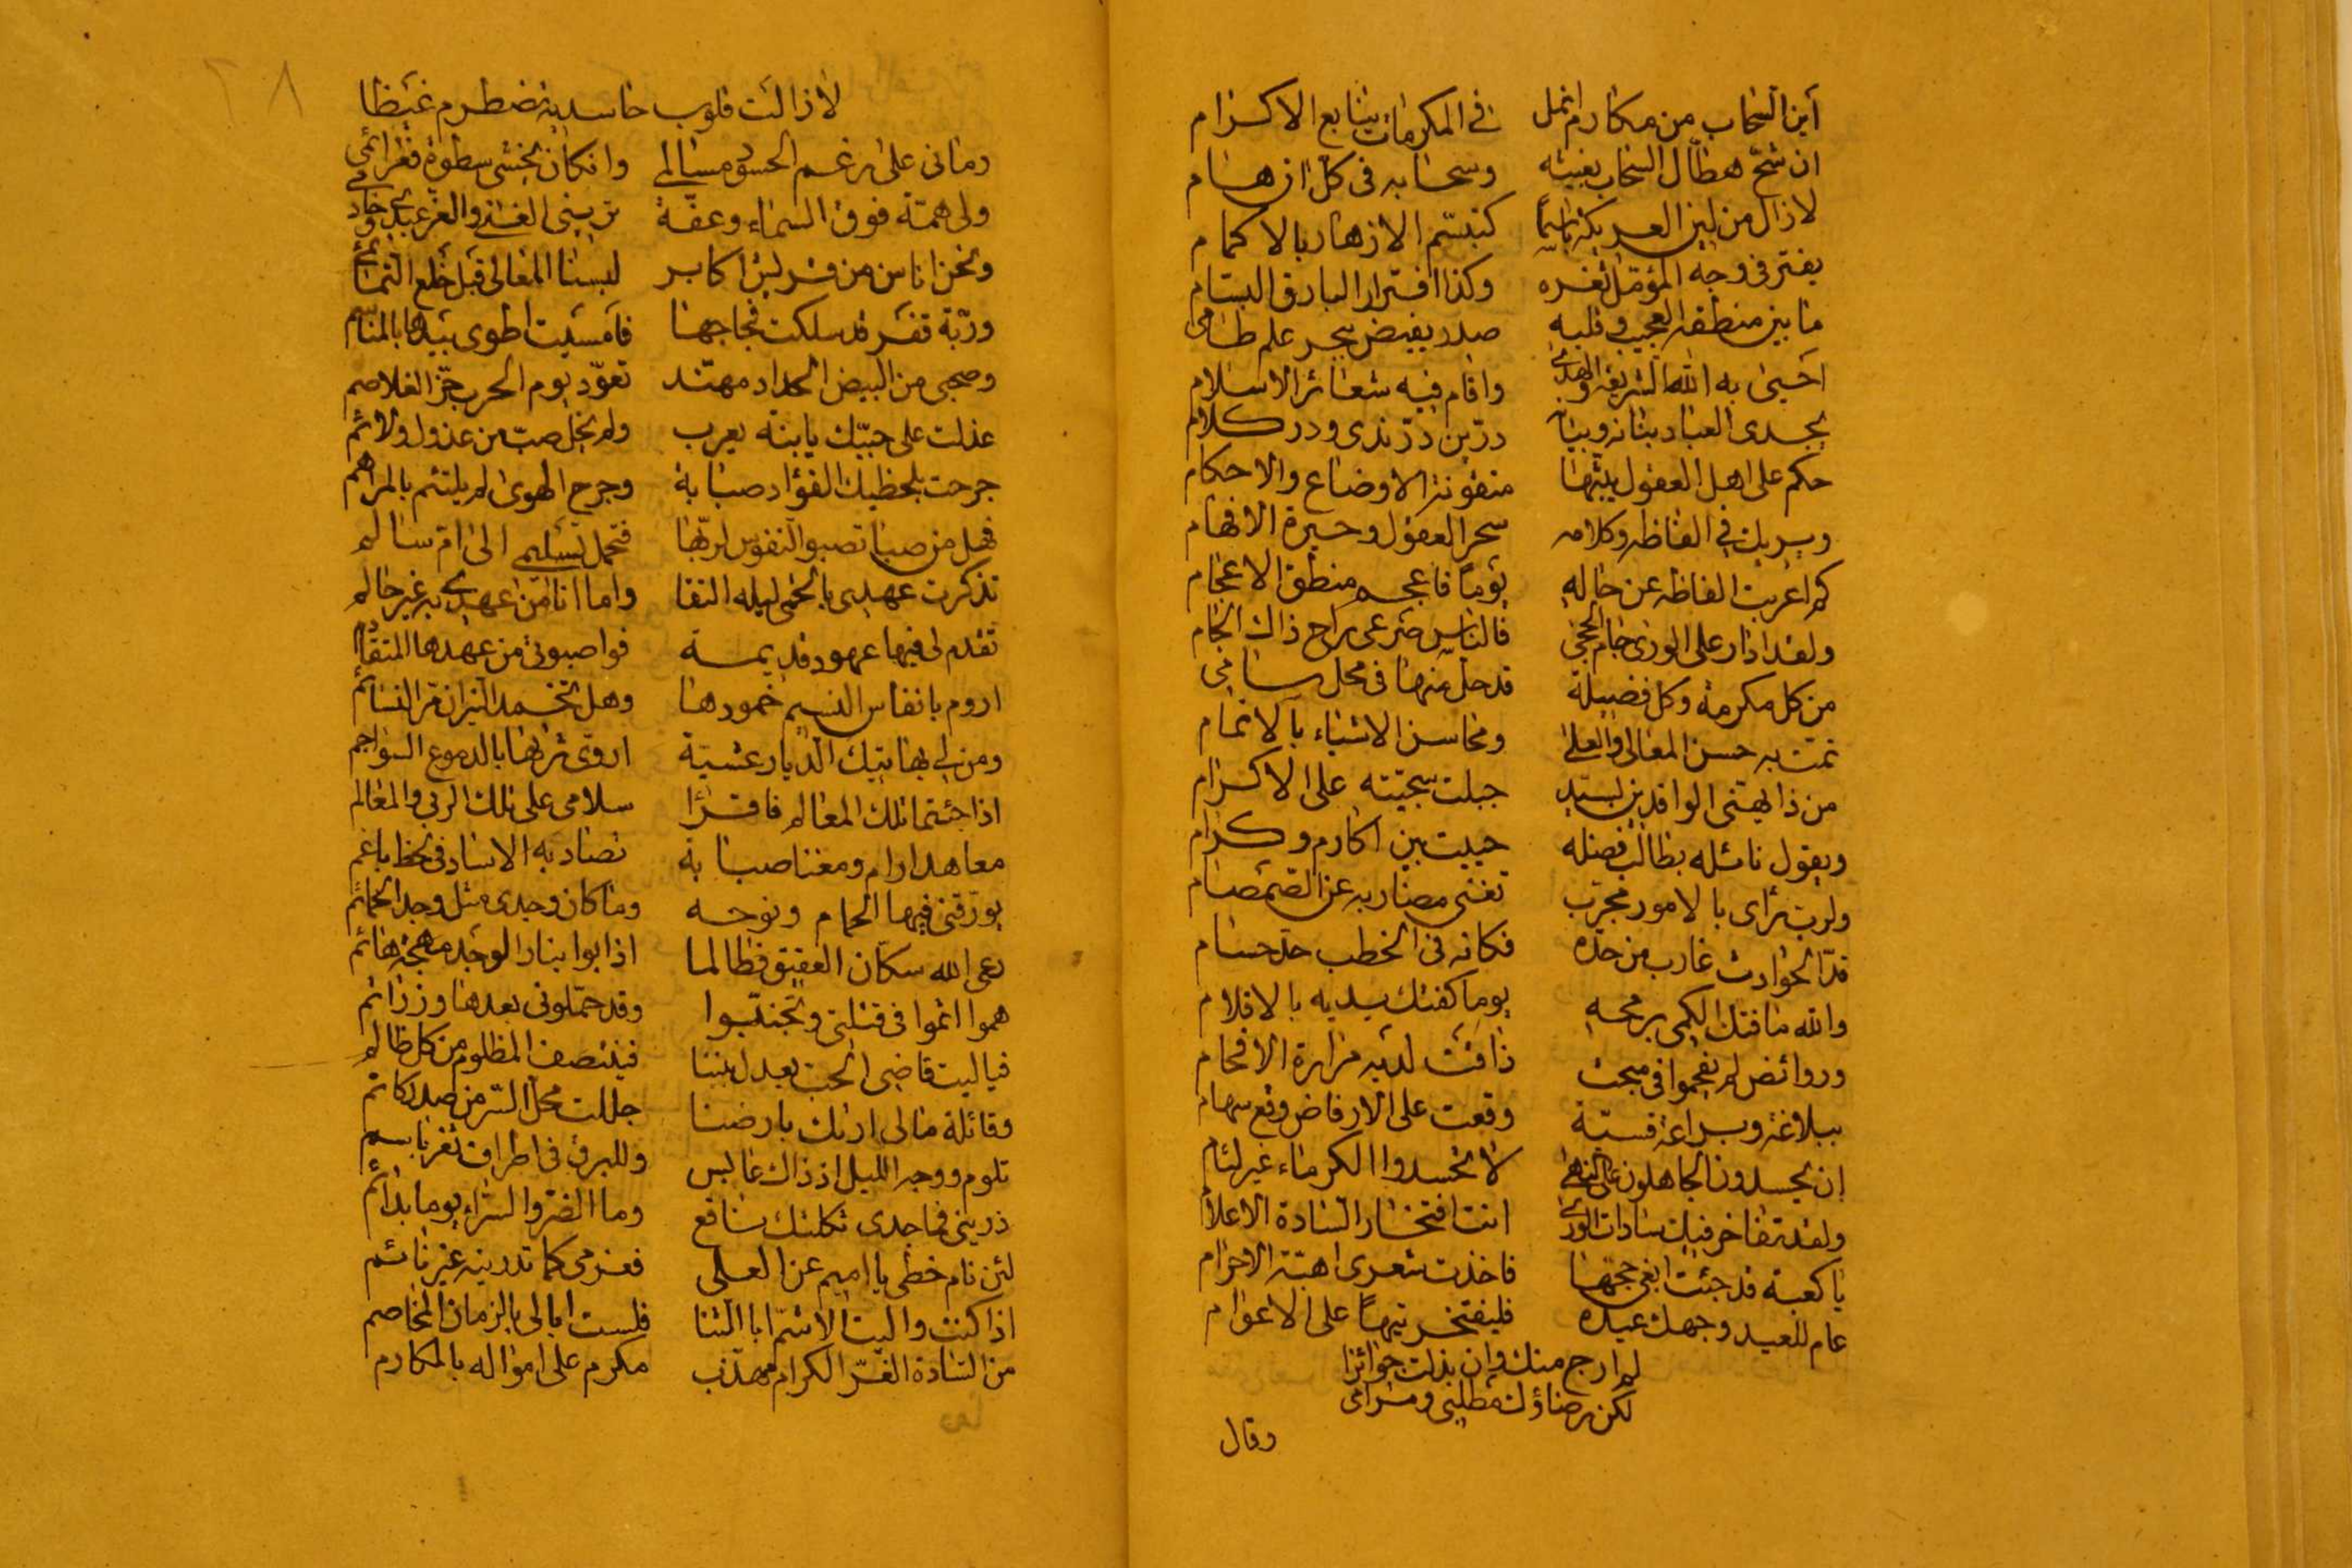 أين السحاب من مكارم انمل في المكرمات ينابع الاكرام
ان شح هطال السحاب بغيثه وسحابه في كل ان هام
لازال من لين العريكة باسما كتبسم الازهار بالاكمام
يفتر في وجه المؤمل ثغره وكذا افترار البارق البسام
ما بين منطقه العجيب وقلبه صدر يفيض ببحر علم طامي
احيى به الله الشريعة والهدى واقام فيه شعائر الاسلام
يجدى العباد بنانه وبيانه درين در ندى ودر كلام
حكم على اهل العقول يبثها متقونة الاوضاع والاحكام
ويريك في الفاظه وكلامه سحر العقول وحيرة الافهام
كم اعربت الفاظه عن حاله يوما فاعجم منطق الاعجام
ولقد ادار على الورى جام الحجى فالناس صرعى راح ذاك الجام
من كل مكرمة وكل فضيلة قد حل منها في محل سامي
تمت به حسن المعالي والعلى ومحاسن الاشياء بالاتمام
من ذا يهتني الوافدين بسيد جبلت سجيته على الاكرام
ويقول نائله بطالب فضله حييت بين اكارم وكرام
ولرب رأى بالامور مجرب تغنى مضاربه عن الصمصام
قد الحوادث غارب من حده فكانه في الخطب حد حسام
والله ما فتك الكمى برمحه يوما كفتك يديه بالاقلام
وروائض لم يفحموا في مبحث ذاقت لديه مرارة الافحام
ببلاغة وبراعة قسية وقعت على الارفاض وقع سهام
ان يحسدونا الجاهلون على النهى لا تحسدوا الكرماء غير لئام
ولقد تفاخر فيك سادات الورى انت افتخار السادة الاعلام
يا كعبة قد جئت ابغى حجها فاخذت شعرى اهبة الاحرام
عام للعيد وجهك عيده فليفتخر تيها على الاعوام
لم ارج منك وان بذلت جوائزا
لكن رضاؤك مطلبي ومرامي
وقال
٦٨
لا زالت قلوب حاسديه تضطرم غيظا
رماني على رغم الحسود مسالمي وان كان يخشى سطوة
ولى همة فوق السماء وعفة تريني الغنى والعز
ونحن اناس من قريش اكابر لبسنا المعالى قبل خلع التمائم
وربة قفر قد سلكت فجاجها فامسيت اطوى بيدها بالمناسم
وصحبي من البيض الحداد مهند تعود يوم الحرب حز الغلاصم
عذلت على حبيك يا ابنة يعرب ولم يخل صب من عذول ولائم
جرحت بلحظيك الفؤاد صبابة وجرح الهوى لم يلتئم بالمراهم
فهل من صبا تصبو النفوس لربها فتحمل تسليمي الى ام سالم
تذكرت عهدى بالحمى ليلة النقا واما انا من عهدى به غير حالم
تقدم لى فيها عهود قديمة فواصبوتي من عهدها المتقادم
اروم بانفاس النسيم خمودها وهل تخمد النيران مر النسائم
ومن لي بهاتيك الديار عشية اروى ثراها بالدموع السواجم
اذا جئتما تلك المعالم فاقرأا سلامى على تلك الربى والمعالم
معاهد ارام ومغنا صبابة تصاد به الاساد في لحظ باغم
يورقني فيها الحمام ونوحه وما كان وجدى مثل وجد الحمائم
رعى الله سكان العقيق فطالما اذابوا بنار الوجد مهجة هائم
هموا اثموا في قتلتي وتجنبوا وقد حملوني بعدها وزر اثم
فيا ليت قاضى الحب يعدل بيننا فينتصف المظلوم من كل ظالم
وقائلة مالى اراك بارضنا حللت محل السر من صدر كاتم
تلوم ووجه الليل اذ ذاك عابس وللبرق في اطراف ثغر باسم
ذريني فما جدى ثكلتك نافع وما الضر والسراء يوما بدائم
لئن نام حظى يا اميم عن العلى فعزمى كما تدرينه غير نائم
اذا كنت واليت الاشم ابا الثنا فلست ابالى بالزمان المخاصم
من السادة الغر الكرام مهذب مكرم على امواله بالمكارم